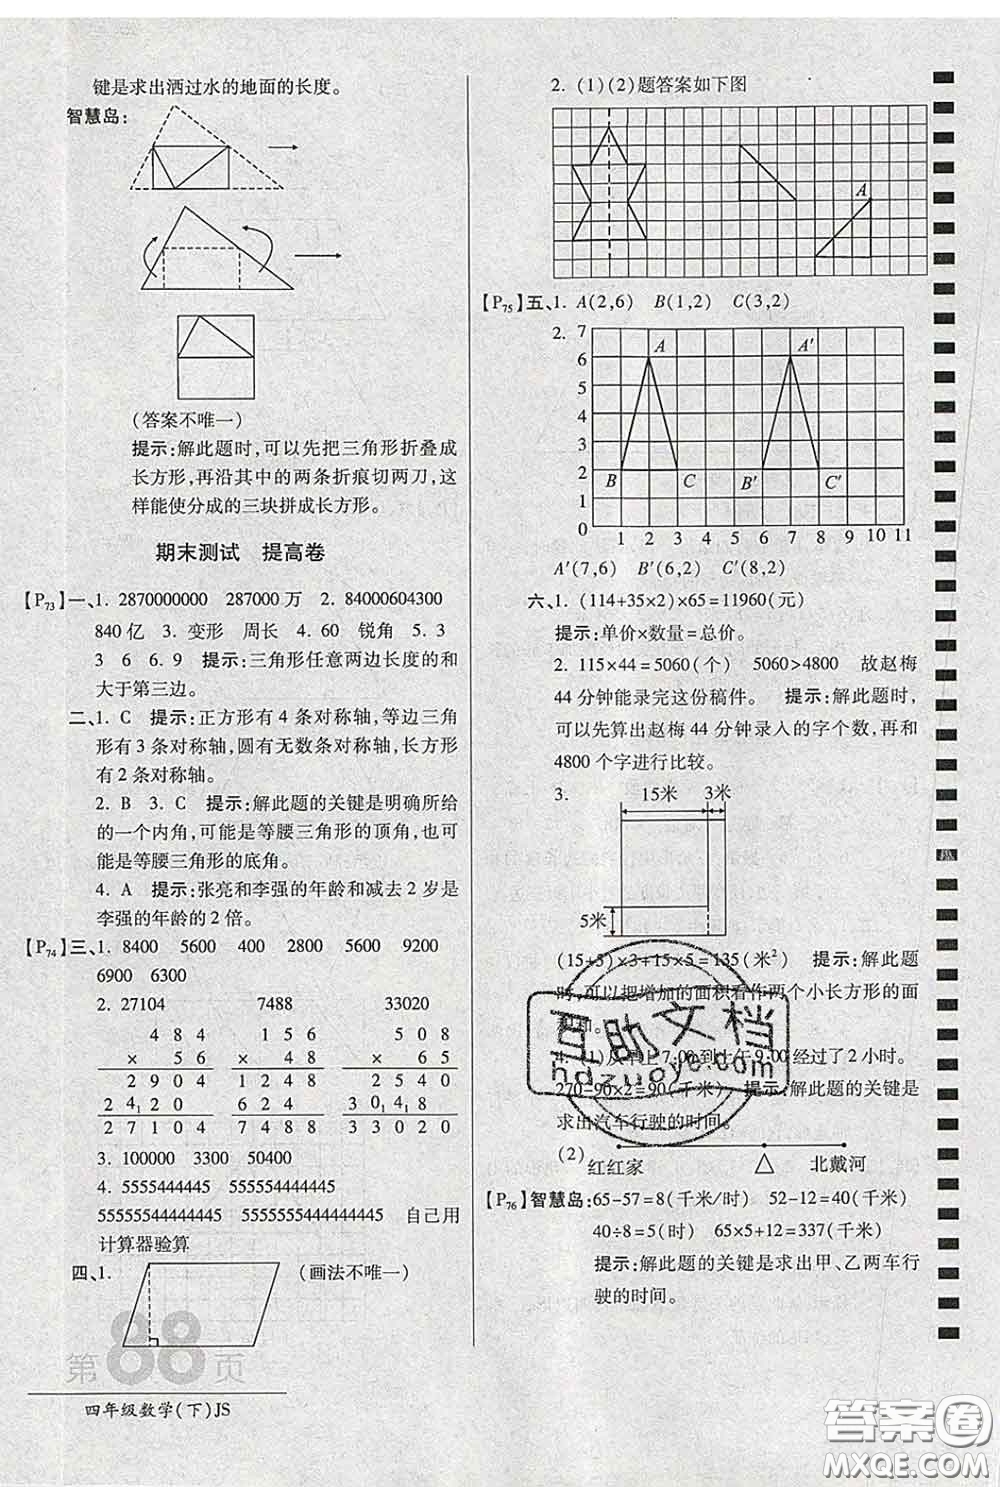 键是求出洒过水的地面的长度。
智慧岛:
(答案不唯一)
提示:解此题时,可以先把三角形折叠成
长方形,再沿其中的两条折痕切两刀,这
样能使分成的三块拼成长方形。
期末测试 提高卷
【P73】一、1. 2870000000 287000万 2. 84000604300
840亿 3. 变形 周长 4. 60 锐角 5. 3
3 6 6. 9 提示:三角形任意两边长度的和
大于第三边。
二、1. C 提示:正方形有4条对称轴,等边三角
形有3条对称轴,圆有无数条对称轴,长方形
有2条对称轴。
2. B 3. C 提示:解此题的关键是明确所给
的一个内角,可能是等腰三角形的顶角,也可
能是等腰三角形的底角。
4. A 提示:张亮和李强的年龄和减去2岁是
李强的年龄的2倍。
【P74】三、1. 8400 5600 400 2800 5600 9200
6900 6300
2. 27104 7488 33020
484 156 508
× 56 × 48 × 65
2904 1248 2540
24120 624 30148
27104 7488 33020
3. 100000 3300 50400
4. 5555444445 555554444445
55555544444445 5555555444444445 自己用
计算器验算
四、1. (画法不唯一)
第88页
四年级数学(下)JS
2. (1)(2)题答案如下图
A
【P75】五、1. A(2,6) B(1,2) C(3,2)
2. 7
6
5
4
3
2
1
0
A A′
B C B′ C′
1 2 3 4 5 6 7 8 9 10 11
A′(7,6) B′(6,2) C′(8,2)
六、1. (114+35×2)×65=11960(元)
提示:单价×数量=总价。
2. 115×44=5060(个) 5060>4800 故赵梅
44分钟能录完这份稿件。 提示:解此题时,
可以先算出赵梅44分钟录入的字个数,再和
4800个字进行比较。
3.
15米 3米
5米
(15+5)×3+15×5=135(米²) 提示:解此题
时,可以把增加的面积看作两个小长方形的面
积和。
4. (1)从早上7:00到上午9:00经过了2小时。
270-90×2=90(千米) 提示:解此题的关键是
求出汽车行驶的时间。
(2)
红红家 △ 北戴河
【P76】智慧岛:65-57=8(千米/时) 52-12=40(千米)
40÷8=5(时) 65×5+12=337(千米)
提示:解此题的关键是求出甲、乙两车行
驶的时间。
互助文档
hdzuoye.com
答案圈
MXQE.COM